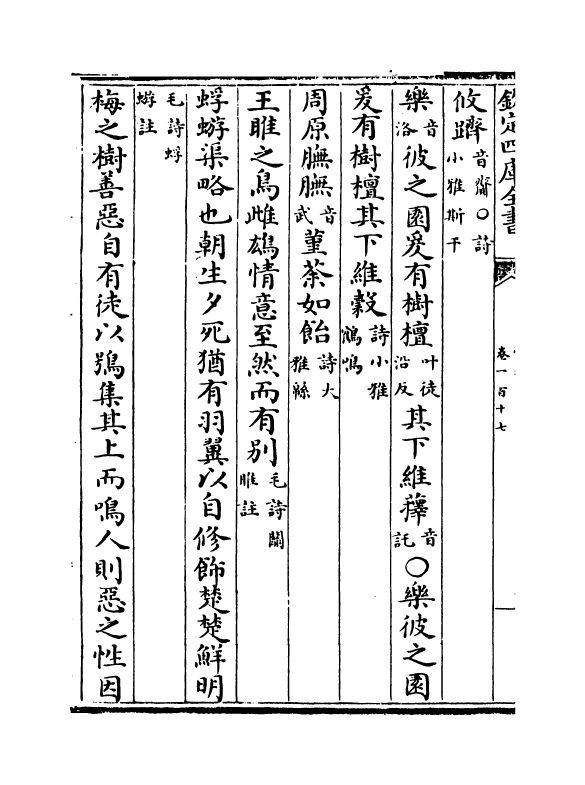 欽定四庫全書
卷一百十七
攸躋音齊○詩小雅斯干
樂音洛彼之園爰有樹檀叶徒沿反其下維蘀音託○樂彼之園
爰有樹檀其下維穀詩小雅鶴鳴
周原膴膴音武菫荼如飴詩大雅緜
王雎之鳥雌雄情意至然而有别毛詩關雎註
蜉蝣渠略也朝生夕死猶有羽翼以自修飾楚楚鮮明
毛詩蜉蝣註
梅之樹善惡自有徒以鴞集其上而鳴人則惡之性因